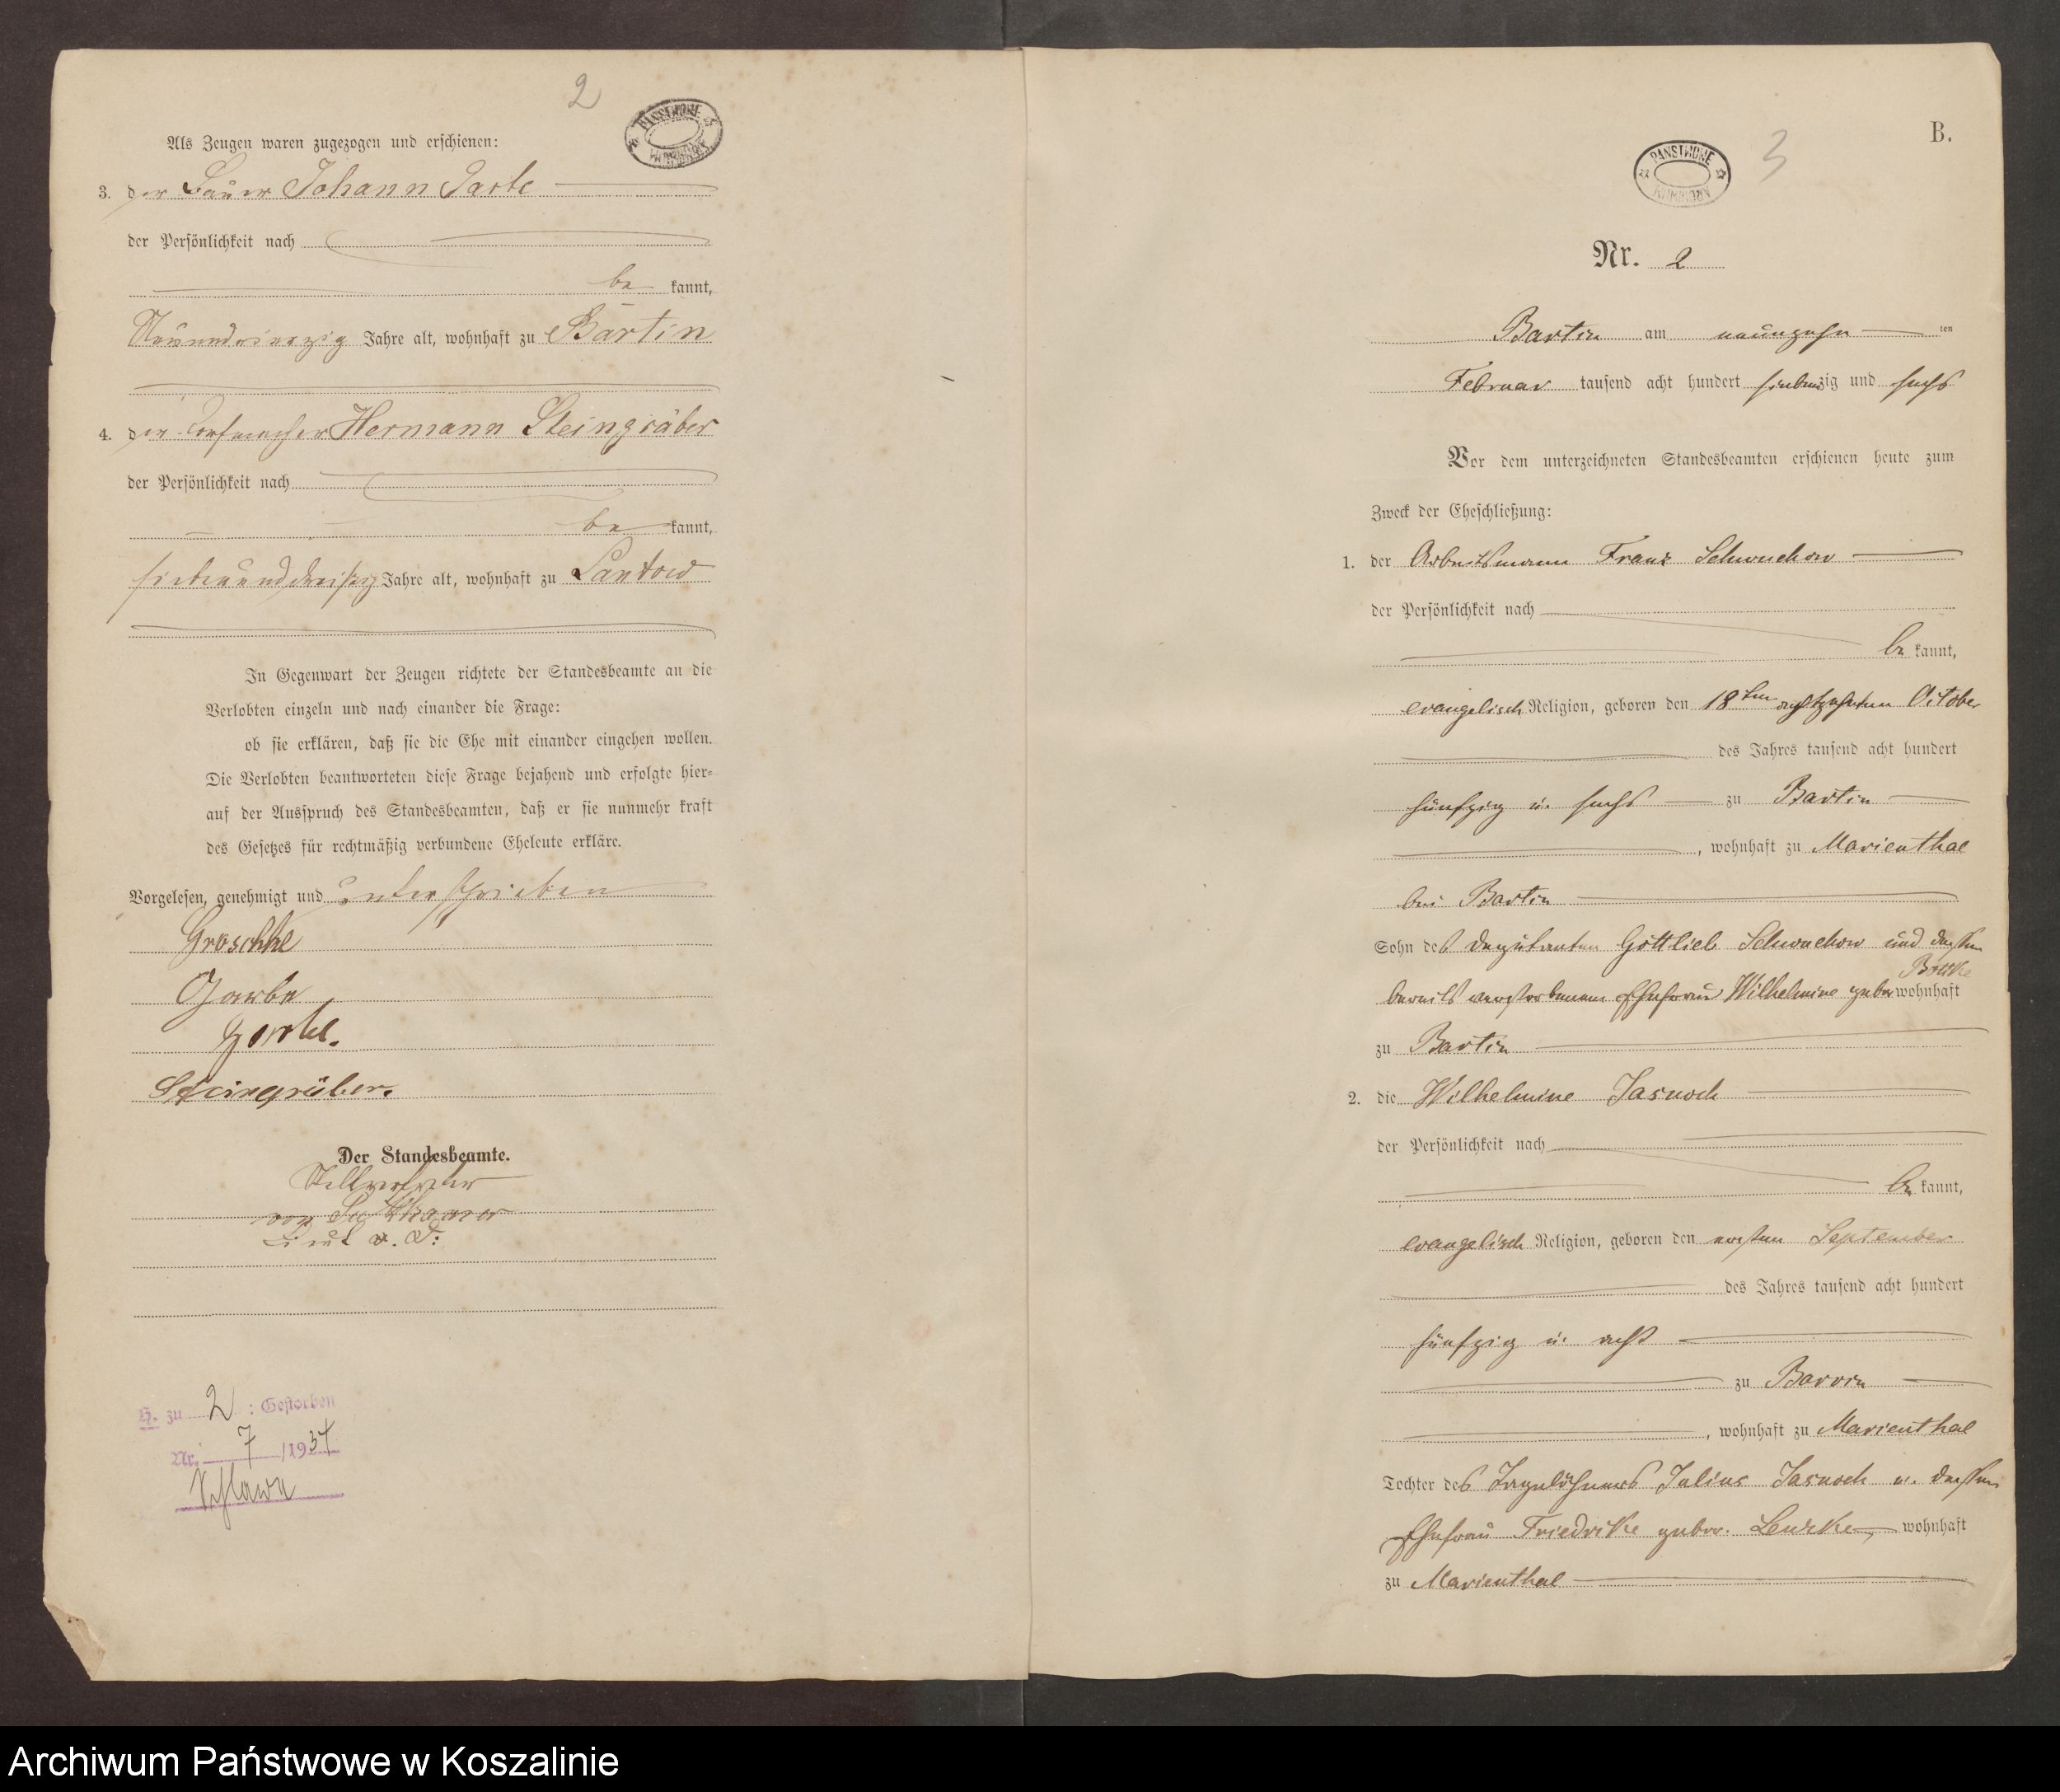 2
PANSTWOWE ARCHIWUM
Als Zeugen waren zugezogen und erschienen:
3. der Bauer Johann
der Persönlichkeit nach
be kannt,
Neunundvierzig Jahre alt, wohnhaft zu Bartin
4. der Hermann Steingräber
der Persönlichkeit nach
be kannt,
siebenunddreißig Jahre alt, wohnhaft zu Lantow
In Gegenwart der Zeugen richtete der Standesbeamte an die
Verlobten einzeln und nach einander die Frage:
ob sie erklären, daß sie die Ehe mit einander eingehen wollen.
Die Verlobten beantworteten diese Frage bejahend und erfolgte hier=
auf der Ausspruch des Standesbeamten, daß er sie nunmehr kraft
des Gesetzes für rechtmäßig verbundene Eheleute erkläre.
Vorgelesen, genehmigt und unterschrieben
Groschke
Steingräber.
Der Standesbeamte.
Stellvertreter
von Puttkamer
H. zu 2 : Gestorben
Nr. 7 /1937
Schlawe
B.
PANSTWOWE ARCHIWUM
3
Nr. 2
Bartin am neunzehn ten
Februar tausend acht hundert siebenzig und sechs
Vor dem unterzeichneten Standesbeamten erschienen heute zum
Zweck der Eheschließung:
1. der Arbeitsmann Franz Schwuchow
der Persönlichkeit nach
be kannt,
evangelisch Religion, geboren den 18ten achtzehnten October
des Jahres tausend acht hundert
fünfzig u. sechs zu Bartin
, wohnhaft zu Marienthal
bei Bartin
Sohn des Deputanten Gottlieb Schwuchow und dessen
bereits verstorbenen Ehefrau Wilhelmine gebor wohnhaft
zu Bartin
2. die Wilhelmine Jasnoch
der Persönlichkeit nach
be kannt,
evangelisch Religion, geboren den ersten September
des Jahres tausend acht hundert
fünfzig u. acht
zu Barvin
, wohnhaft zu Marienthal
Tochter des Tagelöhners Julius Jasnoch u. dessen
Ehefrau Friedrike gebor. Lenzke, wohnhaft
zu Marienthal
Archiwum Państwowe w Koszalinie